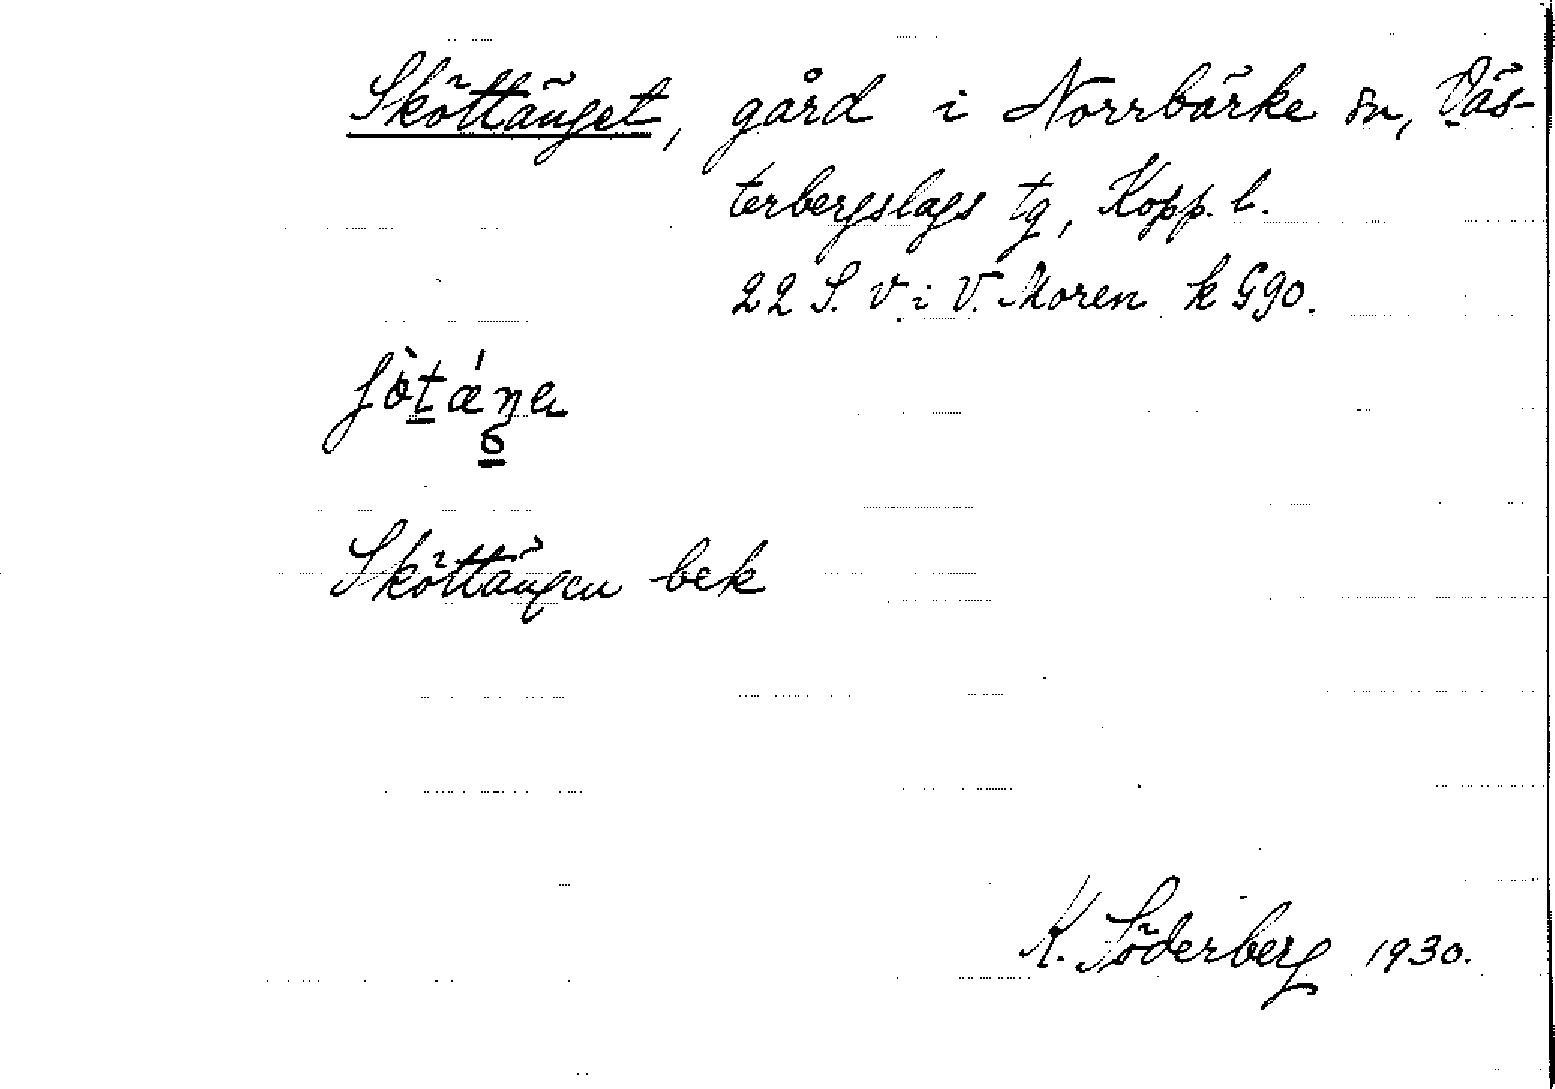 Sköttänget, gård i Norrbärke sn, Väs-
terbergslags tg, Kopp. l.
22 S. V i V. Moren k G90.
Sköttängen bek
K. Söderberg 1930.